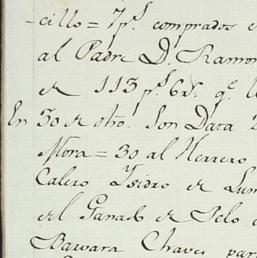 -cillo = 7 p.s comprados
al Padre D. Ramon
de 113 p.s 6 r.s q.e
En 30 de otro. Son Data
Mora = 30 al Herrero
Calero Ysidro de
el Ganado de Pelo
Barvara Chaves par